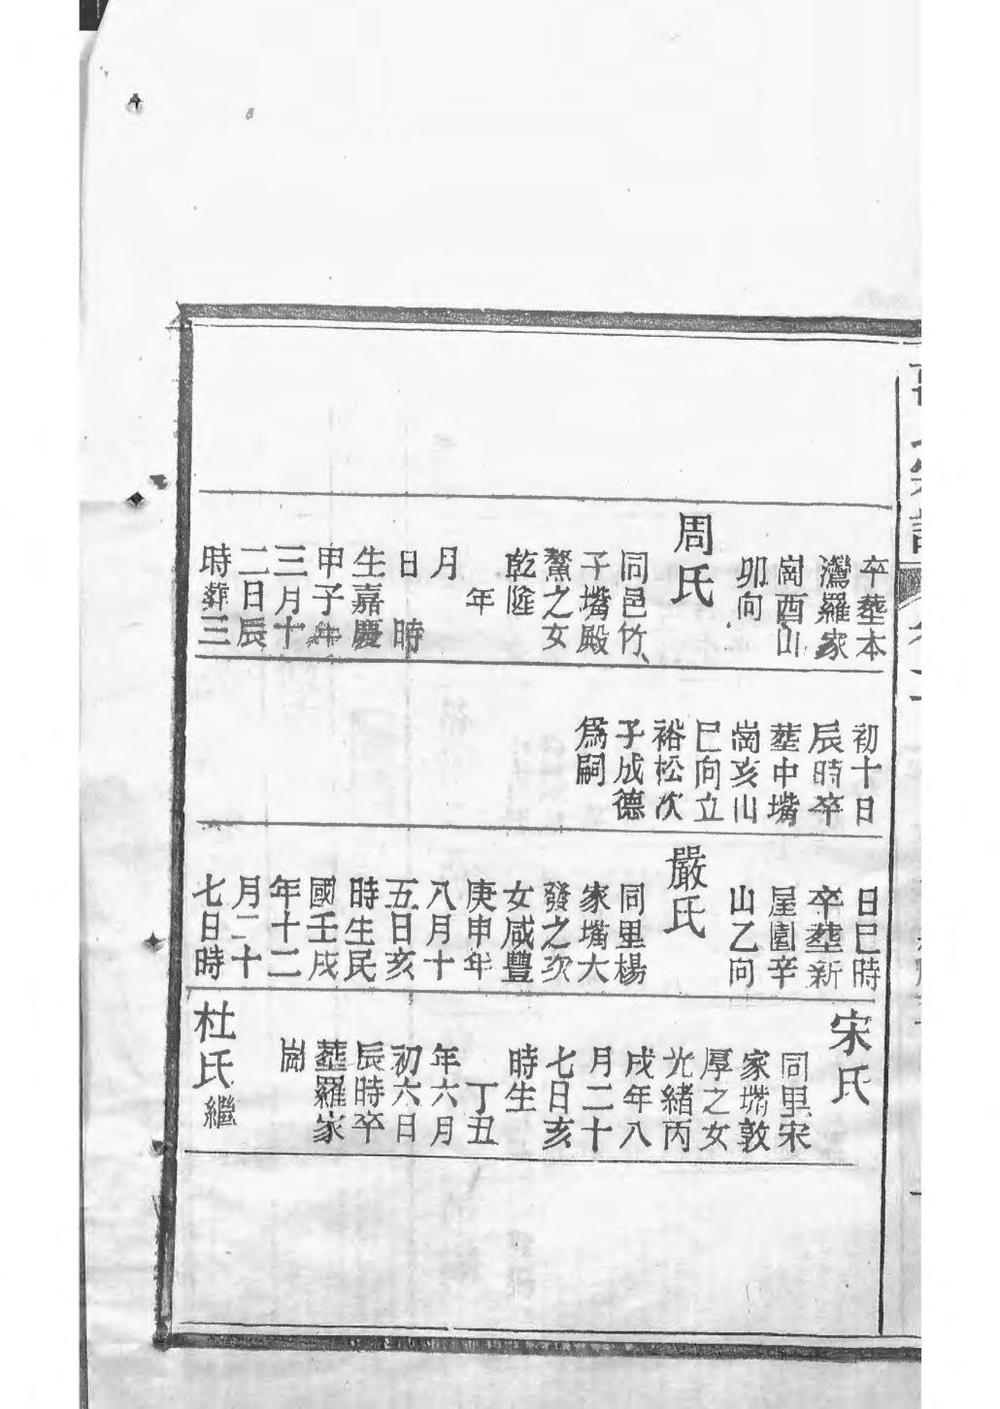 卒塟本
灣羅家
崗酉山
卯向
周氏
同邑竹
子嘴殿
鰲之女
乾隆
年
月
日時
生嘉慶
甲子年
三月十
二日辰
時葬三
初十日
辰時卒
塟中嘴
崗亥山
巳向立
裕松次
子成德
爲嗣
日巳時
卒塟新
屋園辛
山乙向
嚴氏
同里楊
家嘴大
發之次
女咸豐
庚申年
八月十
五日亥
時生民
國壬戌
年十二
月二十
七日時
宋氏
同里宋
家嘴敦
厚之女
光緒丙
戌年八
月二十
七日亥
時生
丁丑
年六月
初六日
辰時卒
塟羅家
崗
杜氏繼